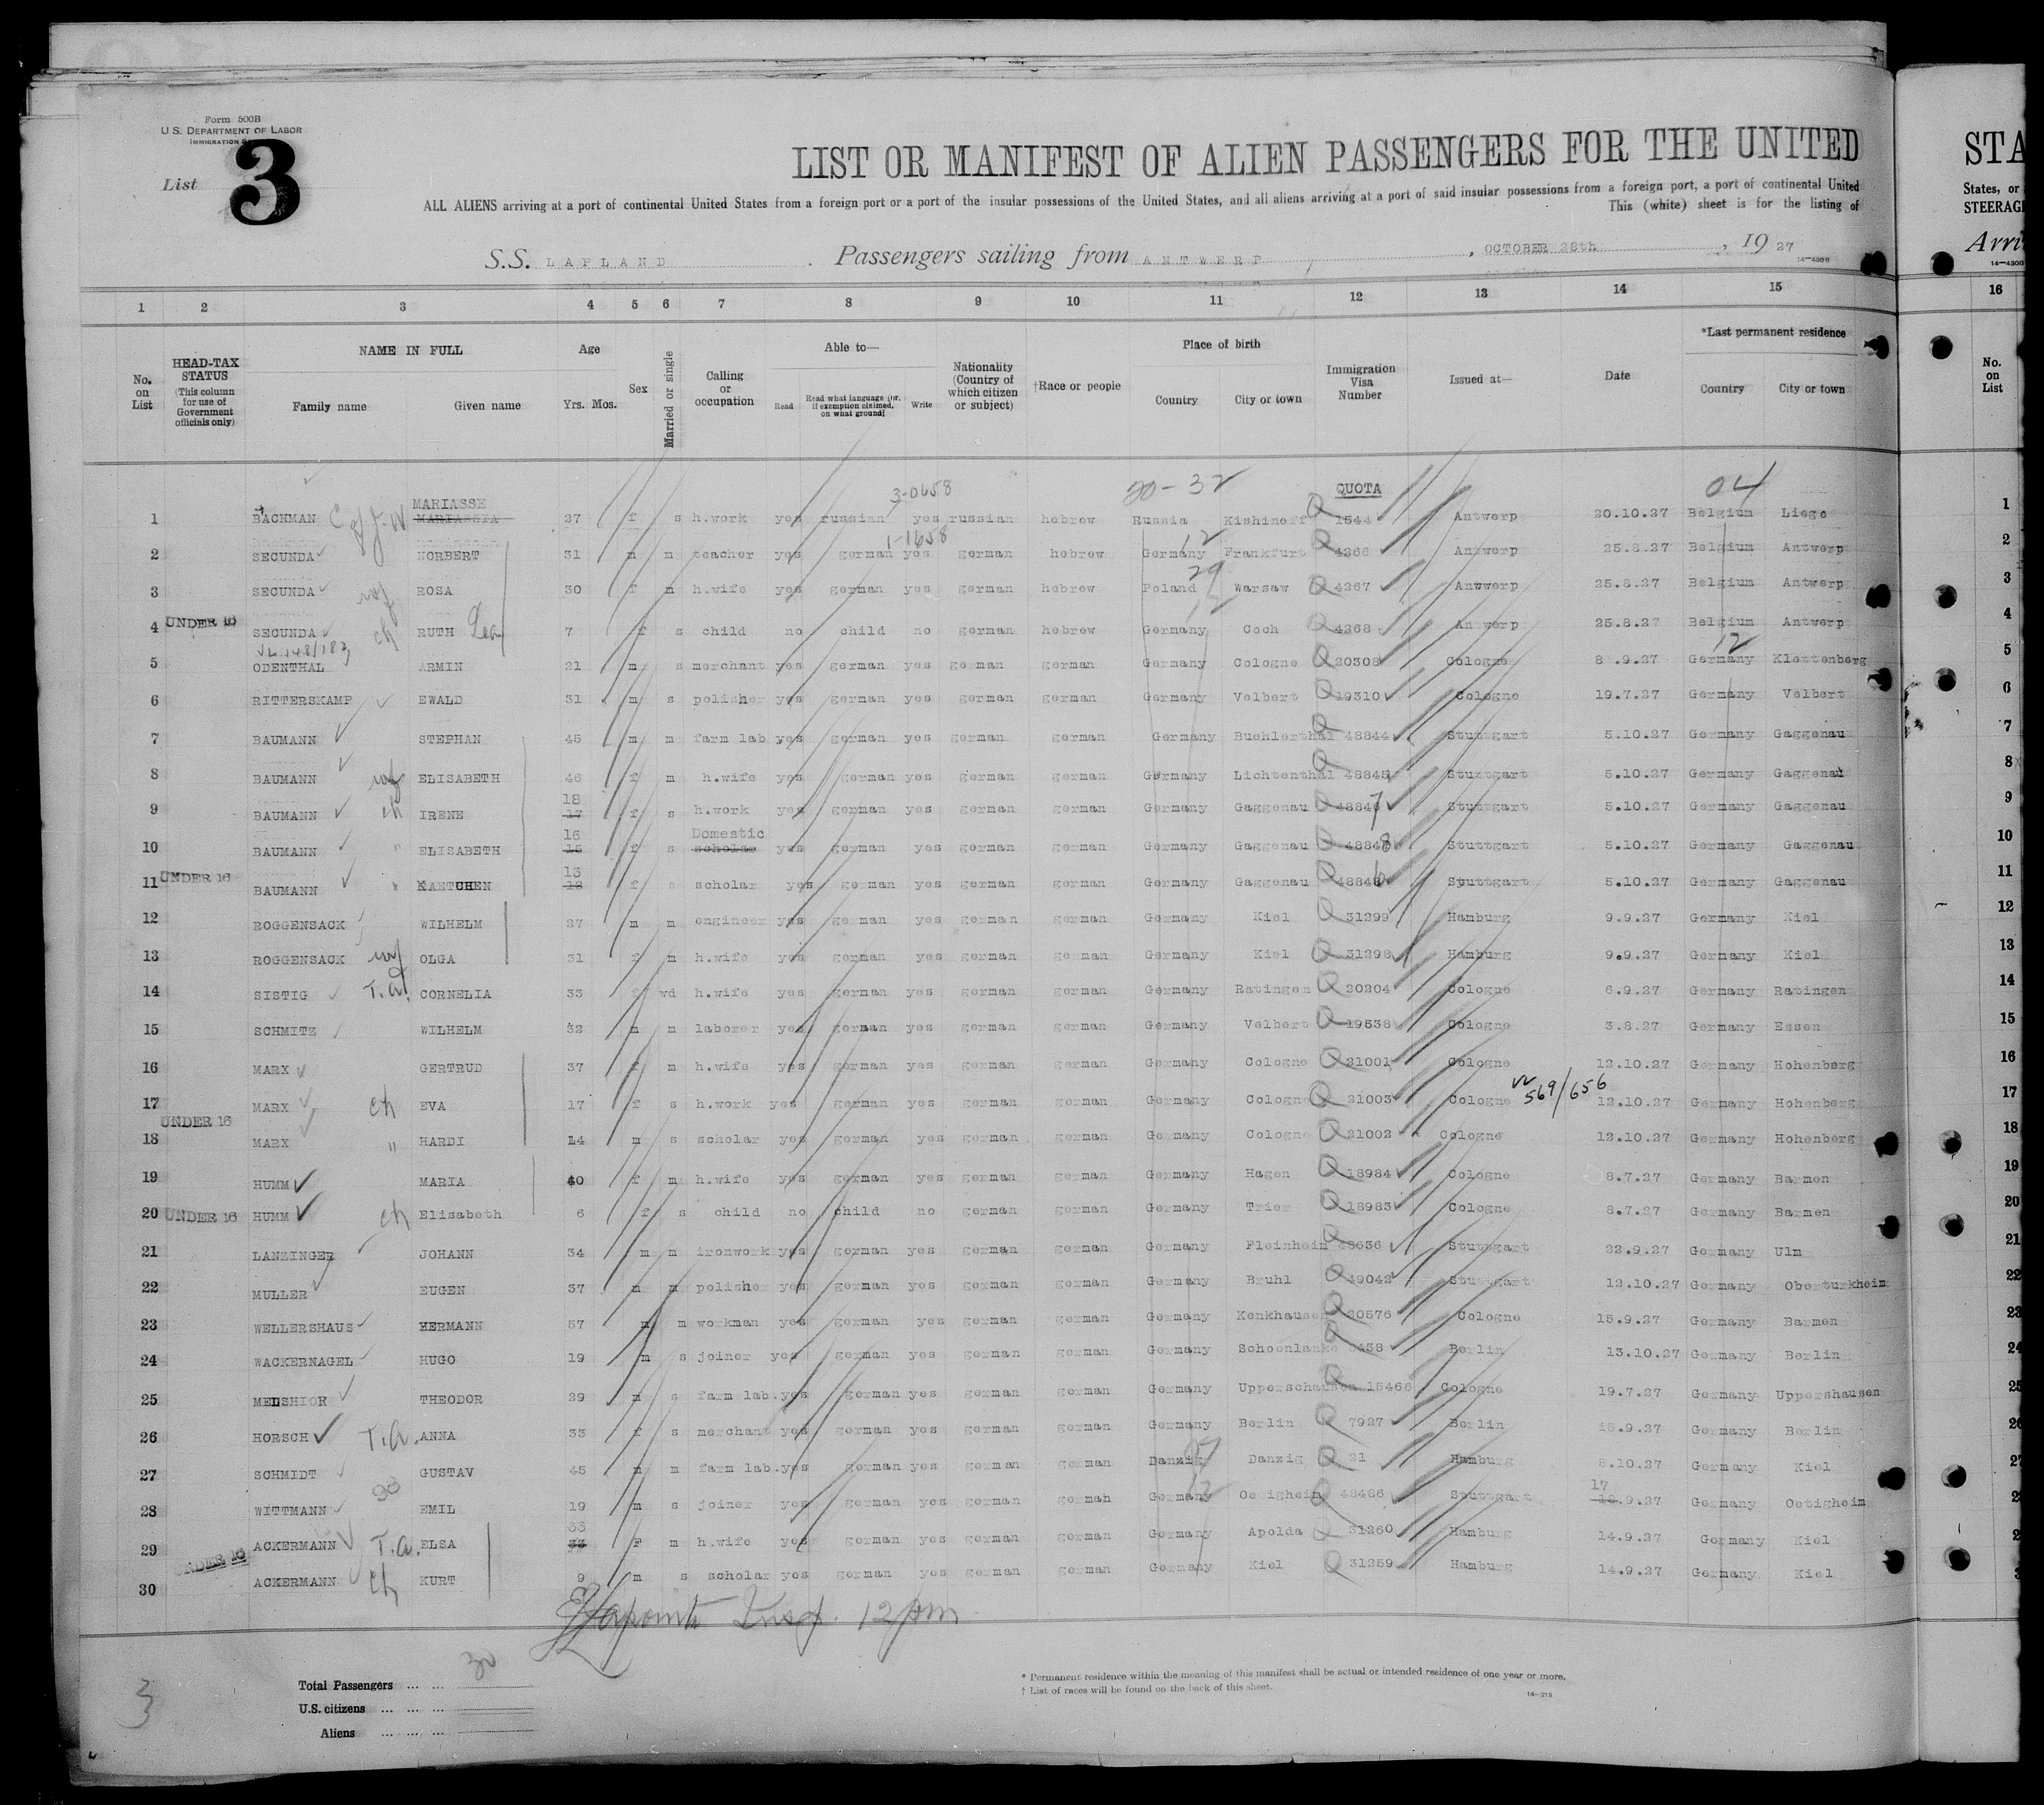 Form 500B
U. S. DEPARTMENT OF LABOR
IMMIGRATION
List 3
LIST OR MANIFEST OF ALIEN PASSENGERS FOR THE UNITED
ALL ALIENS arriving at a port of continental United States from a foreign port or a port of the insular possessions of the United States, and all aliens arriving at a port of said insular possessions from a foreign port, a port of continental United
This (white) sheet is for the listing of
S.S. LAPLAND . Passengers sailing from ANTWERP , OCTOBER 28th , 19 27
14—430B
STA
States, or
STEERAG
Arri
14—430B
1 2 3 4 5 6 7 8 9 10 11 12 13 14 15 16
No. on List HEAD-TAX STATUS (This column for use of Government officials only) NAME IN FULL Family name Given name Age Yrs. Mos. Sex Married or single Calling or occupation Able to— Read Read what language (or, if exemption claimed, on what ground) Write Nationality (Country of which citizen or subject) †Race or people Place of birth Country City or town Immigration Visa Number Issued at— Date *Last permanent residence Country City or town No. on List
3-0658 20-32 QUOTA 04
MARIASSE
1 BACHMAN 27 f s h.work yes russian yes russian hebrew Russia Kishineff Q 1544 Antwerp 20.10.27 Belgium Liege 1
1-1658 12
2 SECUNDA NORBERT 31 m m teacher yes german yes german hebrew Germany Frankfurt Q 4266 Antwerp 25.8.27 Belgium Antwerp 2
29
3 SECUNDA wf ROSA 30 f m h.wife yes german yes german hebrew Poland Warsaw Q 4267 Antwerp 25.8.27 Belgium Antwerp 3
4 UNDER 16 SECUNDA ch RUTH Lea 7 f s child no child no german hebrew Germany Goch Q 4268 Antwerp 25.8.27 Belgium Antwerp 4
12
5 ODENTHAL ARMIN 21 m s merchant yes german yes german german Germany Cologne Q 20308 Cologne 8.9.27 Germany Klettenberg 5
6 RITTERSKAMP EWALD 31 m s polisher yes german yes german german Germany Velbert Q 19310 Cologne 19.7.27 Germany Velbert 6
7 BAUMANN STEPHAN 45 m m farm lab yes german yes german german Germany Buehlerthal Q 48844 Stuttgart 5.10.27 Germany Gaggenau 7
8 BAUMANN wf ELISABETH 46 f m h.wife yes german yes german german Germany Lichtenthal Q 48845 Stuttgart 5.10.27 Germany Gaggenau 8
18
9 BAUMANN ch IRENE 17 f s h.work yes german yes german german Germany Gaggenau Q 48847 Stuttgart 5.10.27 Germany Gaggenau 9
16 Domestic
10 BAUMANN " ELISABETH 15 f s scholar yes german yes german german Germany Gaggenau Q 48848 Stuttgart 5.10.27 Germany Gaggenau 10
13
11 UNDER 16 BAUMANN " KAETCHEN 12 f s scholar yes german yes german german Germany Gaggenau Q 48846 Stuttgart 5.10.27 Germany Gaggenau 11
12 ROGGENSACK WILHELM 27 m m engineer yes german yes german german Germany Kiel Q 31299 Hamburg 9.9.27 Germany Kiel 12
13 ROGGENSACK wf OLGA 31 f m h.wife yes german yes german german Germany Kiel Q 31298 Hamburg 9.9.27 Germany Kiel 13
14 SISTIG T.a. CORNELIA 33 f wd h.wife yes german yes german german Germany Ratingen Q 20204 Cologne 6.9.27 Germany Ratingen 14
15 SCHMITZ WILHELM 32 m m laborer yes german yes german german Germany Velbert Q 19538 Cologne 3.8.27 Germany Essen 15
16 MARX GERTRUD 37 f m h.wife yes german yes german german Germany Cologne Q 21001 Cologne 12.10.27 Germany Hohenberg 16
569/656
17 MARX ch EVA 17 f s h.work yes german yes german german Germany Cologne Q 21003 Cologne 12.10.27 Germany Hohenberg 17
18 UNDER 16 MARX " HARDI 14 m s scholar yes german yes german german Germany Cologne Q 21002 Cologne 12.10.27 Germany Hohenberg 18
19 HUMM MARIA 40 f m h.wife yes german yes german german Germany Hagen Q 18984 Cologne 8.7.27 Germany Barmen 19
20 UNDER 16 HUMM ch Elisabeth 6 f s child no child no german german Germany Trier Q 18983 Cologne 8.7.27 Germany Barmen 20
21 LANZINGER JOHANN 34 m m ironwork yes german yes german german Germany Fleinheim Q 48636 Stuttgart 22.9.27 Germany Ulm 21
22 MULLER EUGEN 37 m m polisher yes german yes german german Germany Bruhl Q 49042 Stuttgart 12.10.27 Germany Oberturkheim 22
23 WELLERSHAUS HERMANN 57 m m workman yes german yes german german Germany Kenkhausen Q 20576 Cologne 15.9.27 Germany Barmen 23
24 WACKERNAGEL HUGO 19 m s joiner yes german yes german german Germany Schoenlanke 8438 Berlin 13.10.27 Germany Berlin 24
25 MELSHIOR THEODOR 29 m s farm lab. yes german yes german german Germany Upperschausen Q 15466 Cologne 19.7.27 Germany Uppershausen 25
26 HORSCH T.a. ANNA 33 f s merchant yes german yes german german Germany Berlin Q 7927 Berlin 15.9.27 Germany Berlin 26
27 SCHMIDT GUSTAV 45 m m farm lab. yes german yes german german Danzig Danzig Q 21 Hamburg 8.10.27 Germany Kiel 27
12 17
28 WITTMANN EMIL 19 m s joiner yes german yes german german Germany Oetigheim Q 48486 Stuttgart 9.27 Germany Oetigheim
33
29 ACKERMANN T.a. ELSA 34 F m h.wife yes german yes german german Germany Apolda Q 31260 Hamburg 14.9.27 Germany Kiel
30 UNDER 16 ACKERMANN ch KURT 9 m s scholar yes german yes german german Germany Kiel Q 31259 Hamburg 14.9.27 Germany Kiel
Insp. 12 pm
Total Passengers ... ... 30
U.S. citizens ... ... ...
Aliens ... ... ...
* Permanent residence within the meaning of this manifest shall be actual or intended residence of one year or more.
† List of races will be found on the back of this sheet.
14—213
3